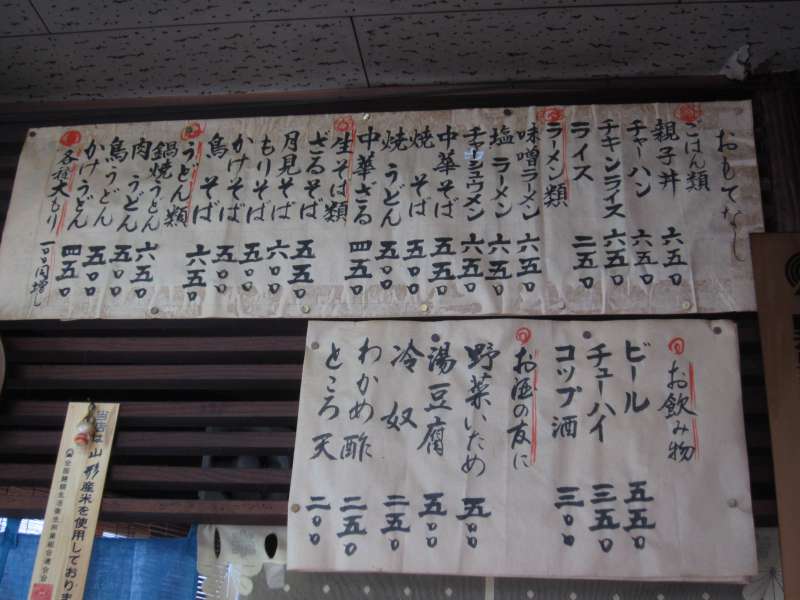 おもてなし
ごはん類
親子丼 六五0
チャーハン 六五0
チキンライス 六五0
ライス 二五0
ラーメン類
味噌ラーメン 六五0
塩ラーメン 六五0
チャーシュウメン 六五0
中華そば 五五0
焼そば 五00
焼うどん 五00
中華ざる 四五0
生そば類
ざるそば 五五0
月見そば 六00
もりそば 五00
かけそば 五00
鳥そば 六五0
うどん類
鍋焼うどん 六五0
肉うどん 五00
鳥うどん 五00
かけうどん 四五0
各種大もり 一00円増し
お飲み物
ビール 五五0
チューハイ 三五0
コップ酒 三00
お酒の友に
野菜いため 五00
湯豆腐 五00
冷奴 二五0
わかめ酢 二五0
ところ天 二00
当店は山形産米を使用しております